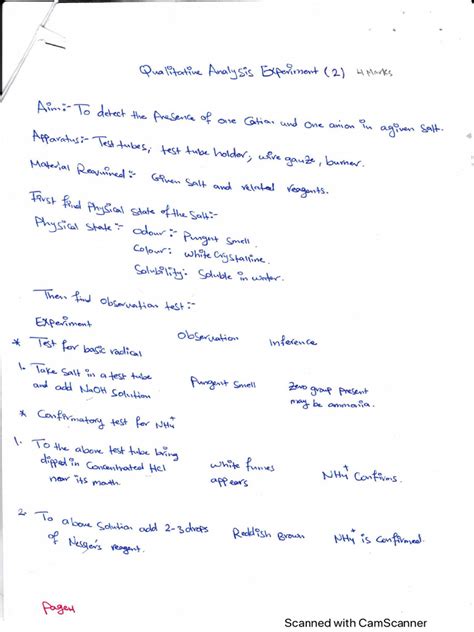 Qualitative Analysis Experiment (2) 4 Marks
Aim:- To detect the Presence of one Cation and one anion in a given Salt.
Apparatus:- Test tubes, test tube holder, wire gauze, burner.
Material Required:- Given Salt and related reagents.
First find Physical State of the Salt:-
Physical State:- Odour:- Pungent Smell.
Colour: White Crystalline.
Solubility: Soluble in water.
Then find observation test:-
Experiment Observation Inference
* Test for basic radical
1. Take Salt in a test tube and add NaOH Solution
Pungent Smell
Zero group present may be ammonia.
* Confirmatory test for NH4+
1. To the above test tube bring dipped in Concentrated Hcl near its mouth.
White fumes appears
NH4+ Confirms.
2. To above Solution add 2-3 drops of Nessler's reagent.
Reddish Brown
NH4+ is confirmed.
Page4
Scanned with CamScanner